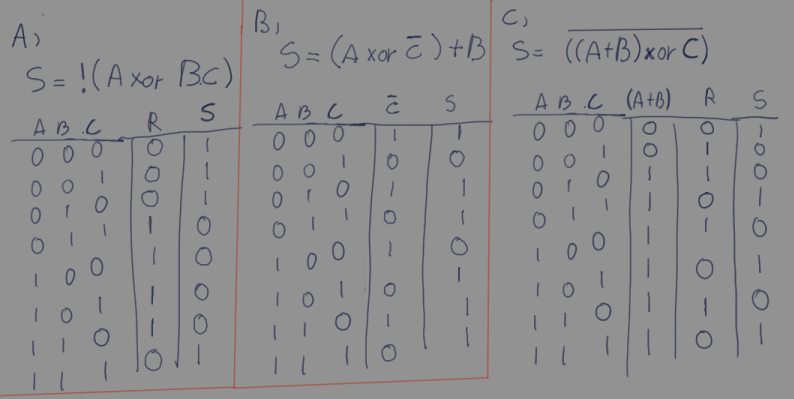 A)
S = !(A xor B.C)
A B .C R S
0 0 0 0 1
0 0 1 0 1
0 1 0 0 1
0 1 1 1 0
1 0 0 1 0
1 0 1 1 0
1 1 0 1 0
1 1 1 0 1
B)
S = (A xor C̅) + B
A B C C̅ S
0 0 0 1 1
0 0 1 0 0
0 1 0 1 1
0 1 1 0 1
1 0 0 1 0
1 0 1 0 1
1 1 0 1 1
1 1 1 0 1
C)
S = ((A+B) xor C)
A B .C (A+B) R S
0 0 0 0 0 1
0 0 1 0 1 0
0 1 0 1 1 0
0 1 1 1 0 1
1 0 0 1 1 0
1 0 1 1 0 1
1 1 0 1 1 0
1 1 1 1 0 1